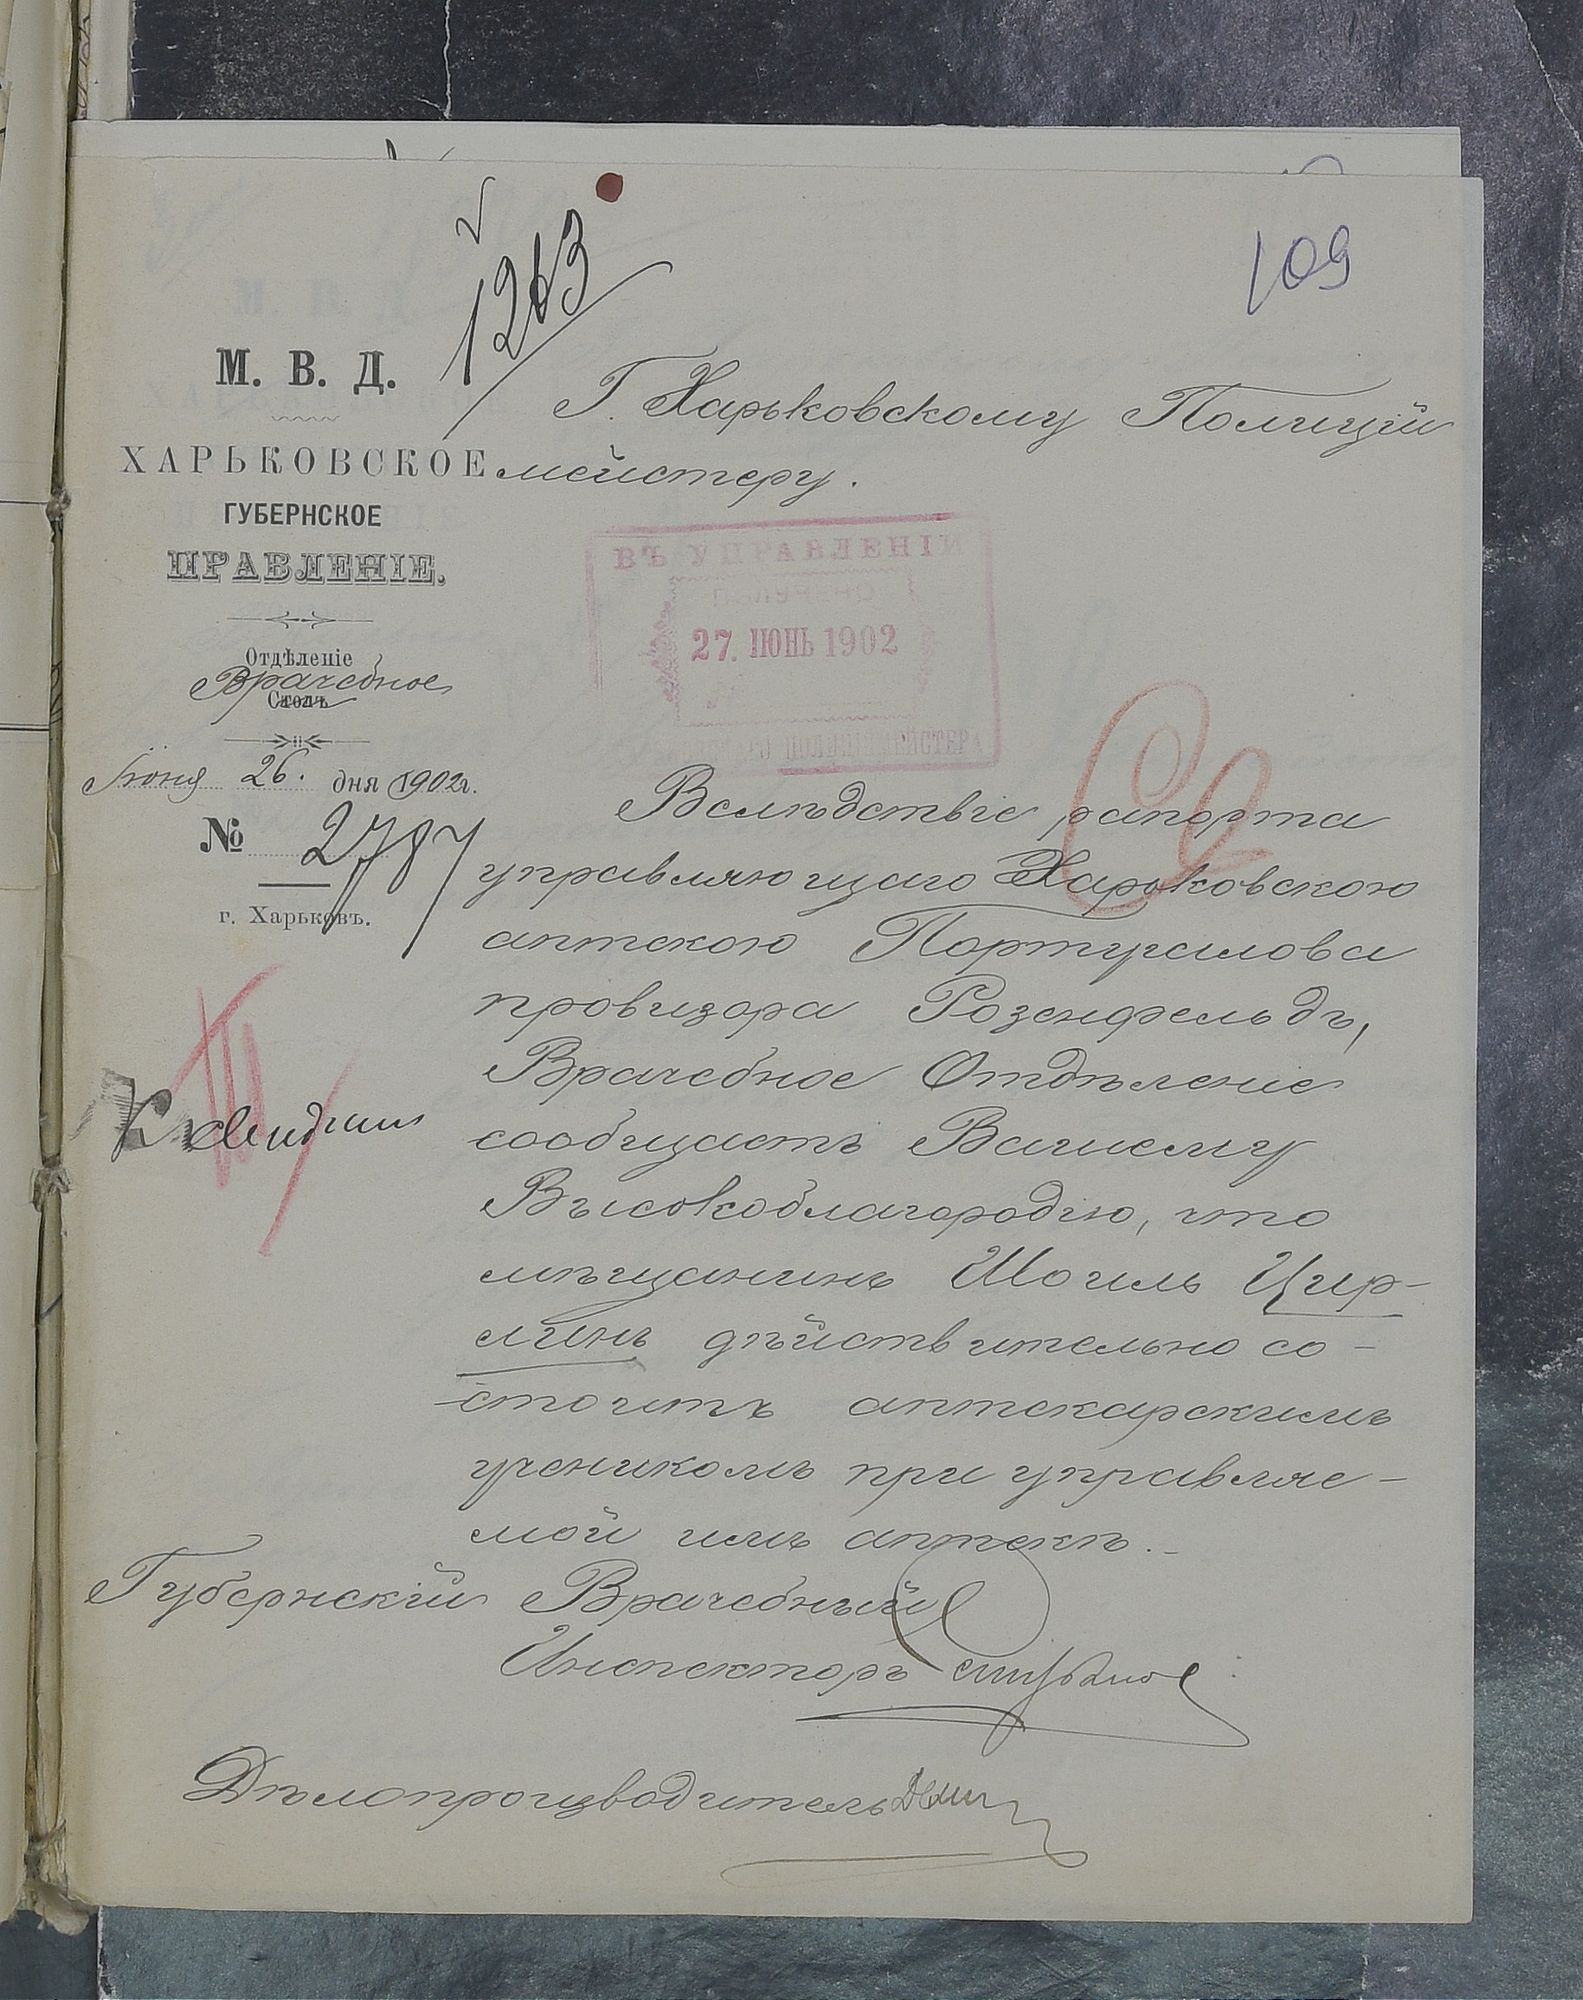 109
1263
М. В. Д.
ХАРЬКОВСКОЕ
ГУБЕРНСКОЕ
ПРАВЛЕНІЕ.
Отдѣленіе
Врачебное
Столъ
Іюня 26. дня 1902 г.
№ 2787
г. Харьковъ.
Г. Харьковскому Полицій
мейстеру.
ВЪ УПРАВЛЕНІИ
ПОЛУЧЕНО
27. ІЮНЬ 1902
ПОЛИЦІЙМЕЙСТЕРА
Вслѣдствіе рапорта
управляющаго Харьковскою
аптекою Португалова
провизора Розенфельдъ,
Врачебное Отдѣленіе
сообщаетъ Вашему
Высокоблагородію, что
мѣщанинъ Шоиль Цир-
линъ дѣйствительно со-
стоитъ аптекарскимъ
ученикомъ при управляе-
мой имъ аптекѣ.
III
Губернскій Врачебный
Инспекторъ
Дѣлопроизводитель